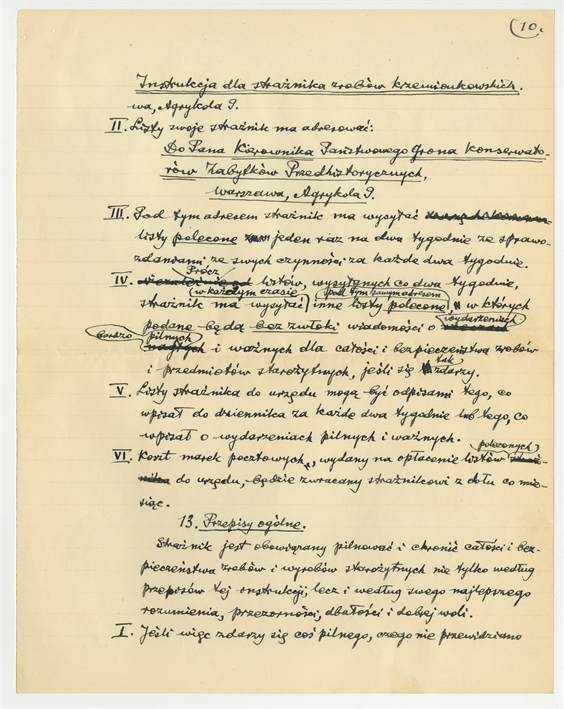 10.
Instrukcja dla strażnika zrębów krzemionkowskich.
wa, Agrykola 9.
II. Listy swoje strażnik ma adresować:
Do Pana Kierownika Państwowego Grona Konserwato-
rów Zabytków Przedhistorycznych,
Warszawa, Agrykola 9.
III. Pod tym adresem strażnik ma wysyłać
listy polecone jeden raz na dwa tygodnie ze sprawo-
zdaniami ze swych czynności za każde dwa tygodnie.
Prócz
IV. listów, wysyłanych co dwa tygodnie,
(w każdym czasie (pod tym samym adresem)
strażnik ma wysyłać inne listy polecone, w których
wydarzeniach
podane będą bez zwłoki wiadomości o
bardzo pilnych
i ważnych dla całości i bezpieczeństwa zrębów
tak
i przedmiotów starożytnych, jeśli się zdarzy.
V. Listy strażnika do urzędu mogą być odpisami tego, co
wpisał do dziennika za każde dwa tygodnie lub tego, co
wpisał o wydarzeniach pilnych i ważnych.
poleconych
VI. Koszt marek pocztowych, wydany na opłacenie listów
do urzędu, będzie zwracany strażnikowi z dołu co mie-
siąc.
13. Przepisy ogólne.
Strażnik jest obowiązany pilnować i chronić całości i bez-
pieczeństwa zrębów i wyrobów starożytnych nie tylko według
przepisów tej instrukcji, lecz i według swego najlepszego
rozumienia, przezorności, dbałości i dobrej woli.
I. Jeśli więc zdarzy się coś pilnego, czego nie przewidziano